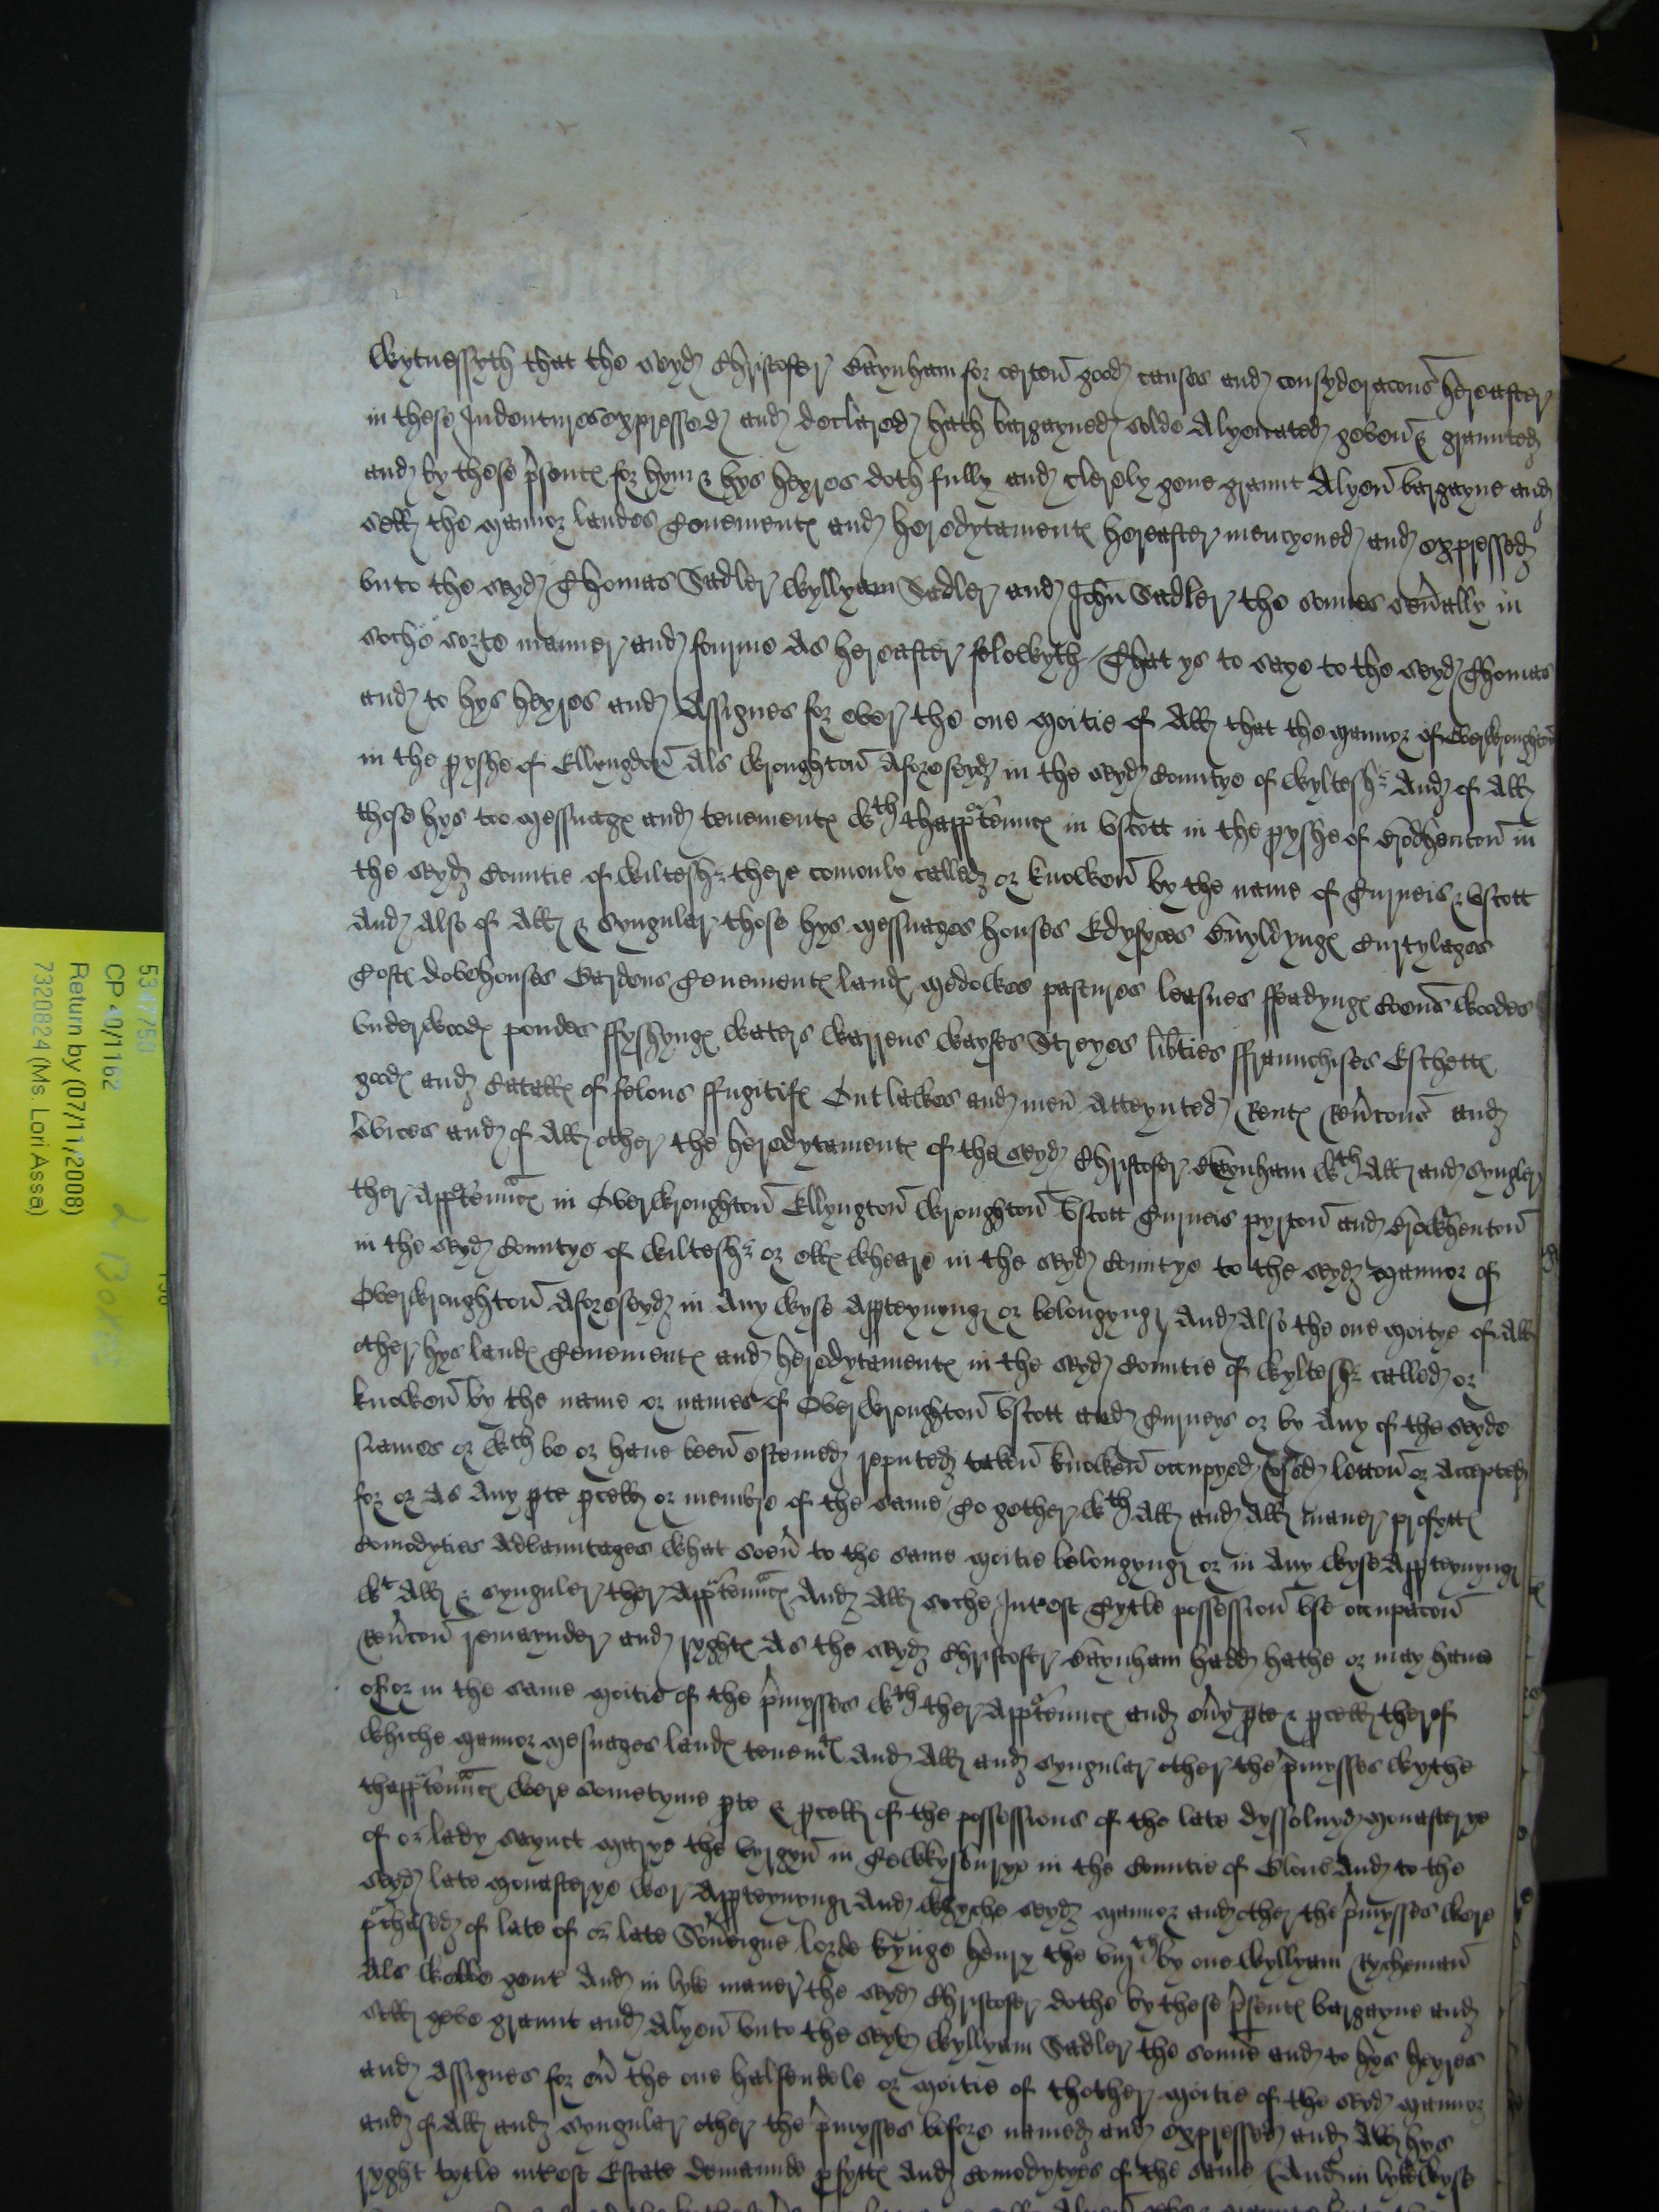 Wytnessyth that the seyd Christofer Baynham for certen good causes and consyderacons hereafter
in these Indentures expressed and declared hath bargayned solde Alyenated geven & graunted
and by these psentes for hym & hys heyres doth fully and clerely geve graunt Alyen bargayne and
sell the mannor landes Tenementes and heredytamentes hereafter mencyoned and expressed
vnto the seyd Thomas Sadler Wyllyam Sadler and John Sadler the sonnes sevally in
soche sorte manner and fourme As hereafter folowyth / That ys to saye to the seyd Thomas
and to hys heyres and Assignes for ever the one moitie of All that the mannor of Overwroughton
in the pyshe of Ellyngdon Als Wroughton Aforeseyd in the seyd Countye of Wyltesh And of All
those hys too messuages and tenementes wth thapptenncs in Vscott in the pyshe of in
the seyd Countie of Wiltesh there comonly called or knowen by the name of Gurneis & Vscott
And Also of All & Syngular those hys messuages houses Edyfyces Buyldynges Curtylages
Toftes dovehouses Gardens Tenementes landes medowes pastures leasues ffeadynges Comens woodes
Vnderwoodes pondes ffyshynges waters warrens wayfes Streyes libties ffraunchises Eschettes
goodes and Catalles of felons ffugitifes Outlawes and men Atteynted Rentes Revcons and
svices and of All other the heredytamentes of the seyd Christofer Baynham wth All and syngler
ther Apptenncs in Overwroughton Ellyngton Wroughton Vscott Gurneis pyrton and
in the seyd Countye of Wiltesh or elles wheare in the seyd Countye to the seyd mannor of
Overwroughton Aforeseyd in Any wyse Appteynyng or belongyng And Also the one moitye of All
other hys landes Tenementes and heredytamentes in the seyd Countie of Wyltesh called or
knowen by the name or names of Overwroughton Vscott and Gurneys or by Any of the seyde
names or wch be or have been estemed reputed taken knowen occupyed vsed letton or Accepted
for or As Any pte pcell or membre of the same / To gether wth All and All maner profyttes
Comodyties Advauntages what soev to the same moitie belongyng or in Any wyse Appteynyng
wt All & Synguler ther Apptenncs And All soche Intrest Tytle possession vse occupacon
Revcon remaynder and ryghtes As the seyd Christofer Baynham hadd hathe or may have
of or in the same moitie of the pmysses wth ther Apptenncs and evy pte & pcell therof
whiche mannor mesuages landes tenemtes And All and Syngular other the pmysses wythe
thapptenncs were sometyme pte & pcell of the possessions of the late dyssoluyd monasterye
of or lady saynct marye the vyrgyn in Tewkysburye in the Countie of Glouc And to the
seyd late monasterye wer Appteynyng And whyche seyd mannor and other the pmysses were
pchased of late of or late Soveigne lorde kynge henry the viijth by one Wyllyam Rycheman
Als Webbe gent And in lyke maner the seyd Christofer dothe by these psentes bargayne and
sell geve graunt and Alyen vnto the seyd Wyllyam Sadler the sonne and to hys heyres
and Assignes for ev the one halfendele or moitie of thother moitie of the seyd mannor
and of All and Syngular other the pmysses before named and expressed and All hys
ryght tytle intrest Estate demaunde pfyttes And Comodytyes of the same / And in lykewyse
5347750
CP 40/1162
Return by (07/11/2008)
7320824 (Ms. Lori Assa)